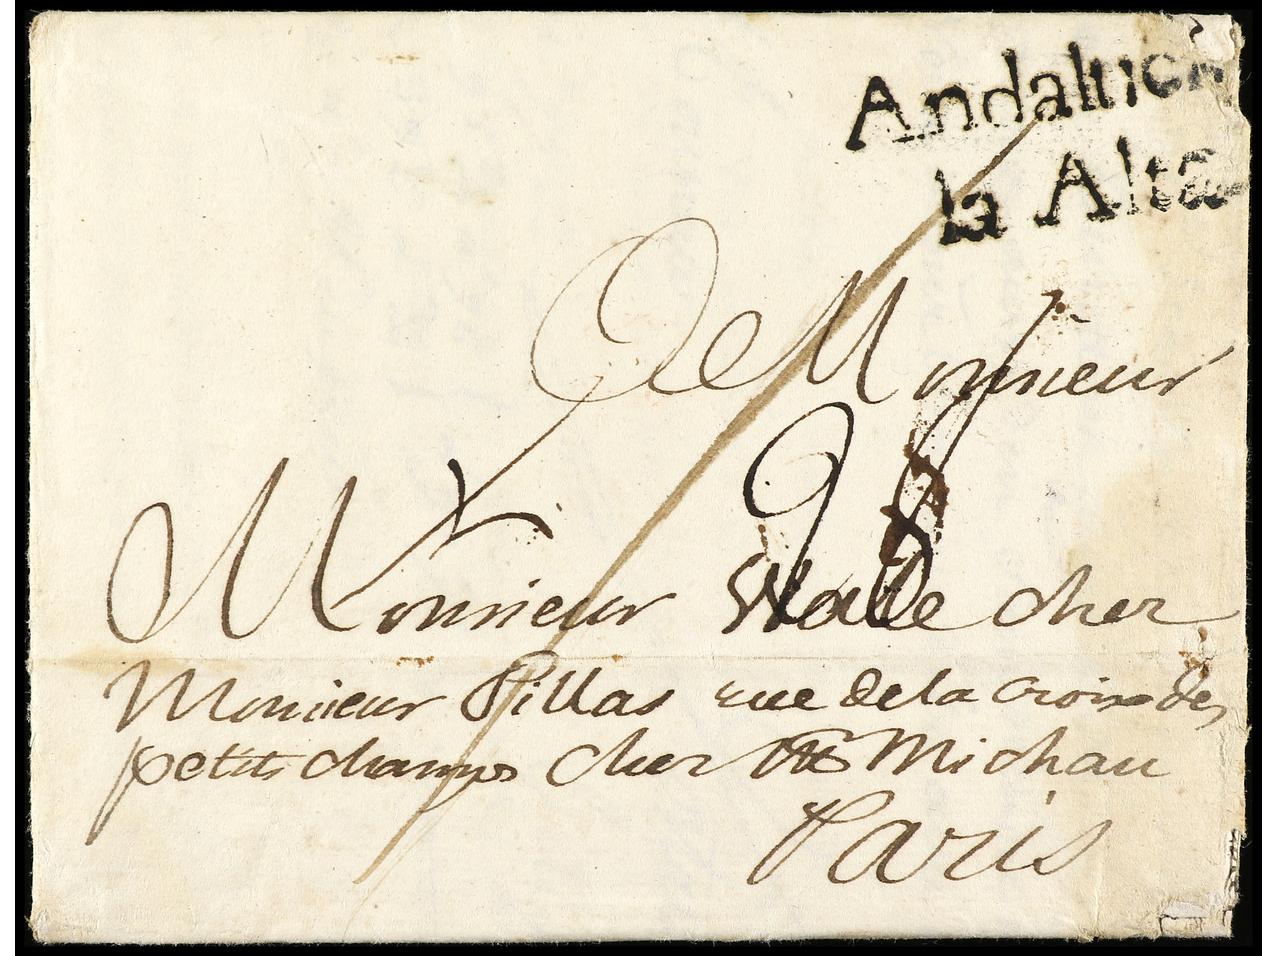 Andalucia
la Alta
A Monsieur
28
Monsieur Wale chez
Monsieur Pillas rue de la croix des
petits champs chez Mr Michau
Paris